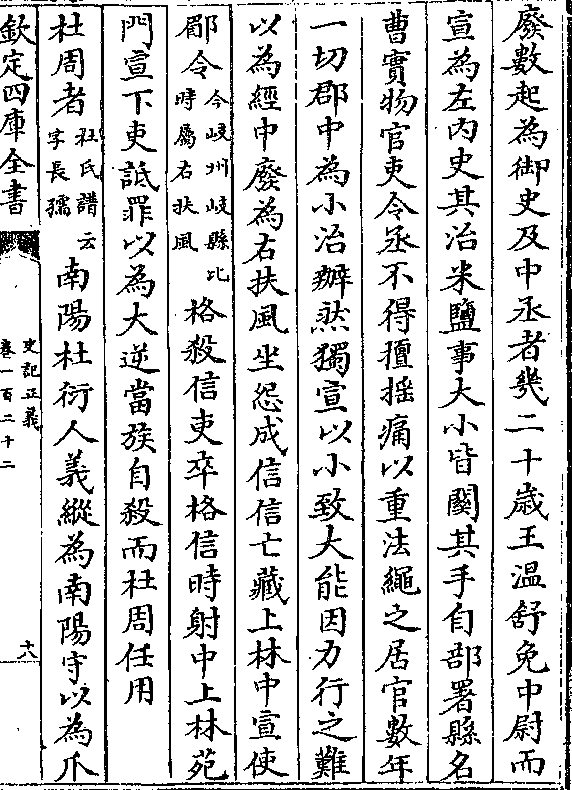 廢數起為御史及中丞者幾二十歳王温舒免中尉而
宣為左内史其治米鹽事大小皆關其手自部署縣名
曹實物官吏令丞不得擅揺痛以重法繩之居官數年
一切郡中為小治辦然獨宣以小致大能因力行之難
以為經中廢為右扶風坐怨成信信亡藏上林中宣使
郿令今岐州岐縣北時屬右扶風格殺信吏卒格信時射中上林苑
門宣下吏詆罪以為大逆當族自殺而杜周任用
杜周者杜氏譜云字長孺南陽杜衍人義縱為南陽守以為爪
欽定四庫全書
史記正義
卷一百二十二
十八